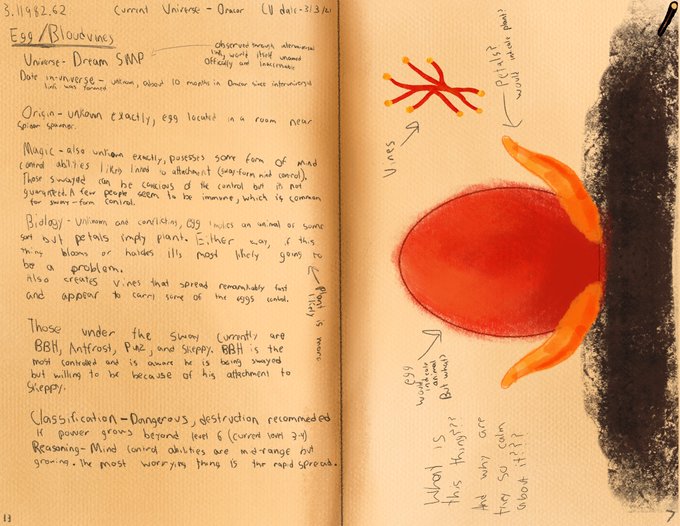 3.11982.62
Current Universe - Oracor
CU date - 31/3/21
Egg/Bloodvines
Universe - Dream SMP
observed through interuniversal
link, world itself unnamed
officially and inaccessible
Date in-universe - unknown, about 10 months in Oracor since interuniversal
link was formed
Origin - unkown exactly, egg located in a room near
spider spawner.
Magic - also unkown exactly, posesses some form of mind
control abilities likely linked to attachment (sway-form mind control).
Those swayed can be concious of the control but is not
guaranteed. A few people seem to be immune, which is common
for sway-form control.
Biology - unknown and conflicting, egg implies an animal of some
sort but petals imply plant. Either way, if this
thing blooms or hatches it's most likely going to
be a problem.
Also creates vines that spread remarkably fast
and appear to carry some of the eggs control.
Plant is more
likely
Those under the sway currently are
BBH, Antfrost, Punz, and Skeppy. BBH is the
most controlled and is aware he is being swayed
but willing to be because of his attachment to
Skeppy.
Classification - Dangerous, destruction recommended
if power grows beyond level 6 (current level 3-4)
Reasoning - Mind control abilities are mid-range but
growing. The most worrying thing is the rapid spread.
Vines
Petals?
would indicate plant?
egg
would
indicate
animal
But what?
What is
this thing??
And why are
they so calm
about it???